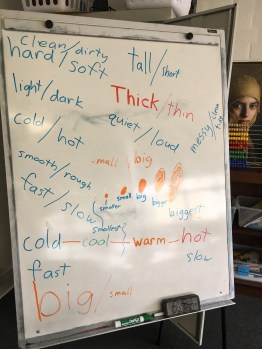 clean/dirty
hard/soft
tall/short
light/dark
Thick/thin
messy/clean
cold/hot
quiet/loud
smooth/rough
small big
fast/slow
smaller small big bigger
smallest biggest
cold—cool—warm—hot
fast slow
big/small